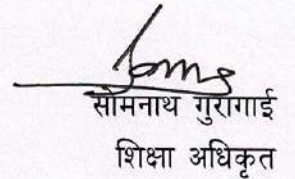 सोमनाथ गुरागाई
शिक्षा अधिकृत